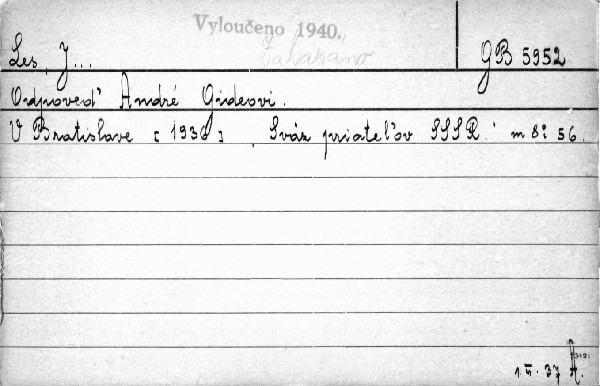 Vyloučeno 1940.
Zakázano
Les, J... GB 5952
Odpoveď André Gideovi.
V Bratislave [1936]. Sväz priateľov SSSR. m 8° 56.
1. 37